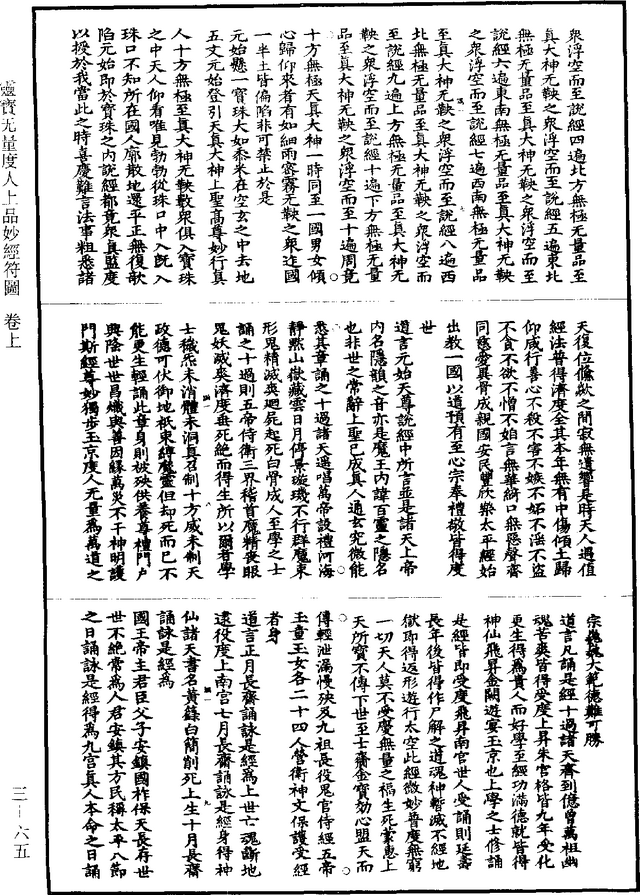 衆浮空而至說經四遍北方無極无量品至
真大神无鞅之衆浮空而至說經五遍東北
無極无量品至真大神无鞅之衆浮空而至
說經六遍東南無極无量品至真大神无鞅
之衆浮空而至說經七遍西南無極无量品
至真大神无鞅之衆浮空而至說經八遍西
北無極无量品至真大神无鞅之衆浮空而
至說經九遍上方無極无量品至真大神无
鞅之衆浮空而至說經十遍下方無極无量
品至真大神无鞅之衆浮空而至十遍周竟
十方無極天真大神一時同至一國男女傾
心歸仰來者有如細雨密霧无鞅之衆迮國
一半土皆偏陷非可禁止於是
元始懸一寶珠大如黍米在空玄之中去地
五丈元始登引天真大神上聖高尊妙行真
人十方無極至真大神无鞅數衆俱入寶珠
之中天人仰看唯見勃勃從珠口中入既入
珠口不知所在國人廓散地還平正無復欹
陷元始即於寶珠之內說經都竟衆真監度
以授於我當此之時喜慶難言法事粗悉諸
天復位儵欻之間寂無遺響是時天人遇值
經法普得濟度全其本年無有中傷傾土歸
仰咸行善心不殺不害不嫉不妬不淫不盜
不貪不欲不憎不㛜言無華綺口無惡聲齊
同慈愛異骨成親國安民豐欣樂太平經始
出教一國以道預有至心宗奉禮敬皆得度
世
道言元始天尊說經中所言並是諸天上帝
內名隱韻之音亦是魔王內諱百靈之隱名
也非世之常辭上聖已成真人通玄究微能
悉其章誦之十過諸天遥唱萬帝設禮河海
靜默山嶽藏雲日月停景璇璣不行群魔束
形鬼精滅爽廻死起死白骨成人至學之士
誦之十過則五帝侍衛三界稽首魔精喪眼
鬼妖滅爽濟度垂死絶而得生所以爾者學
士穢炁未消體未洞真召制十方威未制天
政德可伏御地祇束縛魔靈但却死而已不
能更生輕誦此章身則被殃供養尊禮門户
興隆世世昌熾與善因緣萬災不干神明護
門斯經尊妙獨步玉京度人无量爲萬道之
宗巍巍大範德難可勝
道言凡誦是經十過諸天齊到億曾萬祖幽
魂苦爽皆得受度上昇朱宮格皆九年受化
更生得爲貴人而好學至經功滿德就皆得
神仙飛昇金闕遊宴玉京也上學之士修誦
是經皆即受度飛昇南宮世人受誦則延壽
長年後皆得作尸解之道魂神暫滅不經地
獄即得返形遊行太空此經微妙普度無窮
一切天人莫不受慶無量之福生死蒙惠上
天所寶不傳下世至士齎金寶効心盟天而
傳輕泄漏慢殃及九祖長役鬼官侍經五帝
玉童玉女各二十四人營衛神文保護受經
者身
道言正月長齋誦詠是經爲上世亡魂斷地
逮役度上南宮七月長齋誦詠是經身得神
仙諸天書名黃籙白簡削死上生十月長齋
誦詠是經爲
國王帝主君臣父子安鎮國祚保天長存世
世不絶常爲人君安鎮其方民稱太平八節
之日誦詠是經得爲九宮真人本命之日誦
靈寶无量度人上品妙經符圖 卷上
三—六五